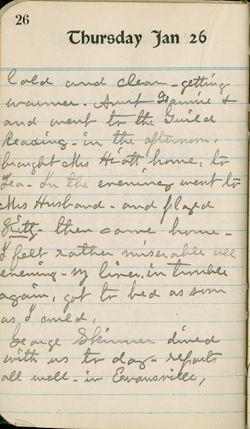 26
Thursday Jan 26
Cold and clear - getting
warmer. Aunt Fannie &
and went to the Guild
Reading - in the afternoon,
brought Mrs Hiatt home, to
Tea - In the evening went to
Mrs Husband - and played
then came home -
I felt rather miserable all
evening - my liver, in trouble
again, got to bed as soon
as I could,
George Skinner dined
with us to day - reports
all well - in Evansville,